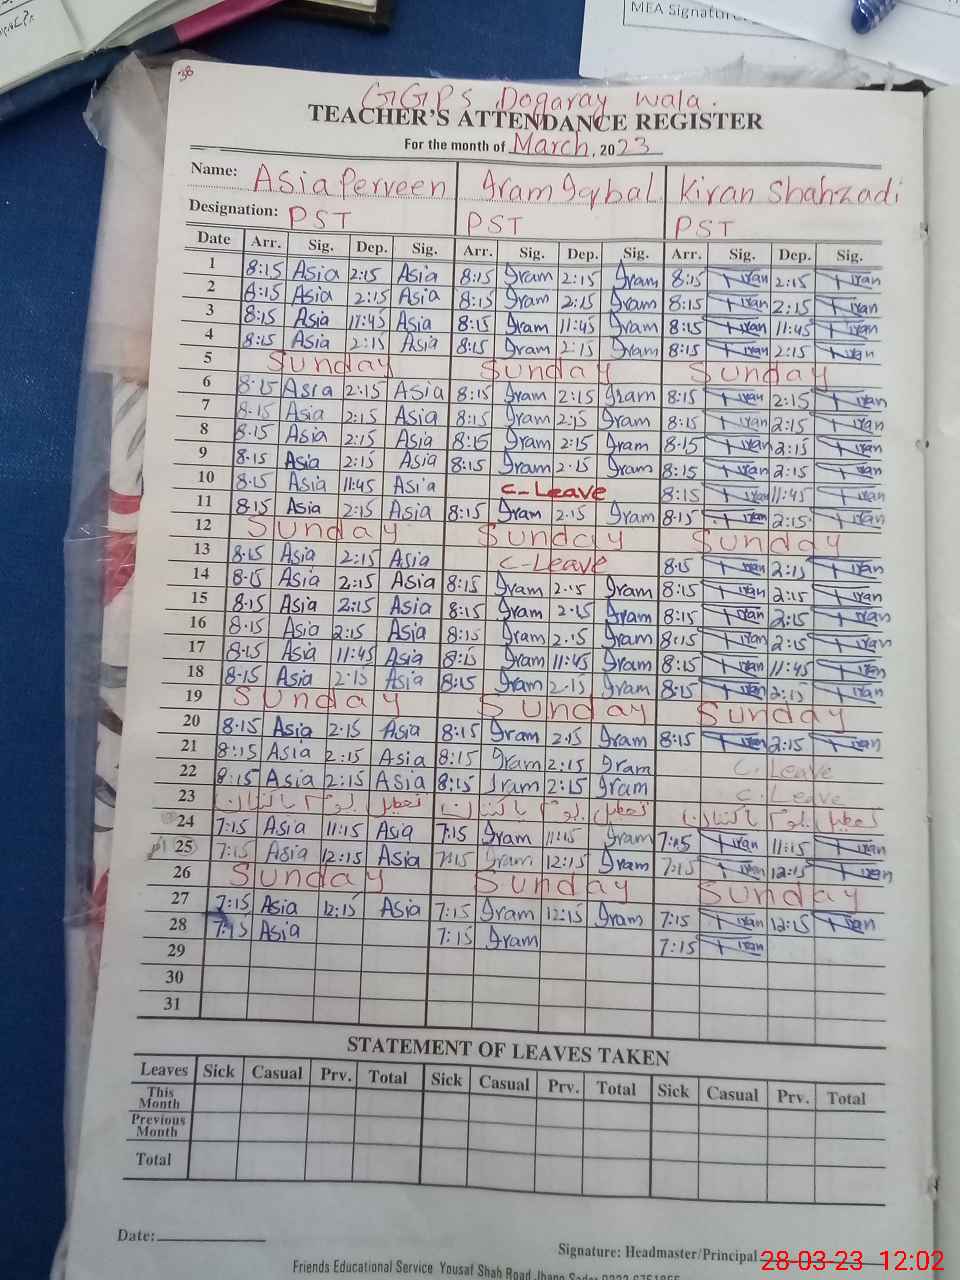 MEA Signature
38
GGPS Dogaray wala.
TEACHER'S ATTENDANCE REGISTER
For the month of March, 2023
Name: Asia Perveen Iram Iqbal Kiran Shahzadi
Designation: PST PST PST
Date Arr. Sig. Dep. Sig. Arr. Sig. Dep. Sig. Arr. Sig. Dep. Sig.
1 8:15 Asia 2:15 Asia 8:15 Iram 2:15 Iram 8:15 Kiran 2:15 Kiran
2 8:15 Asia 2:15 Asia 8:15 Iram 2:15 Iram 8:15 Kiran 2:15 Kiran
3 8:15 Asia 11:45 Asia 8:15 Iram 11:45 Iram 8:15 Kiran 11:45 Kiran
4 8:15 Asia 2:15 Asia 8:15 Iram 2:15 Iram 8:15 Kiran 2:15 Kiran
5 Sunday Sunday Sunday
6 8:15 Asia 2:15 Asia 8:15 Iram 2:15 Iram 8:15 Kiran 2:15 Kiran
7 8:15 Asia 2:15 Asia 8:15 Iram 2:15 Iram 8:15 Kiran 2:15 Kiran
8 8:15 Asia 2:15 Asia 8:15 Iram 2:15 Iram 8:15 Kiran 2:15 Kiran
9 8:15 Asia 2:15 Asia 8:15 Iram 2:15 Iram 8:15 Kiran 2:15 Kiran
10 8:15 Asia 11:45 Asia C-Leave 8:15 Kiran 11:45 Kiran
11 8:15 Asia 2:15 Asia 8:15 Iram 2:15 Iram 8:15 Kiran 2:15 Kiran
12 Sunday Sunday Sunday
13 8:15 Asia 2:15 Asia C-Leave 8:15 Kiran 2:15 Kiran
14 8:15 Asia 2:15 Asia 8:15 Iram 2:15 Iram 8:15 Kiran 2:15 Kiran
15 8:15 Asia 2:15 Asia 8:15 Iram 2:15 Iram 8:15 Kiran 2:15 Kiran
16 8:15 Asia 2:15 Asia 8:15 Iram 2:15 Iram 8:15 Kiran 2:15 Kiran
17 8:15 Asia 11:45 Asia 8:15 Iram 11:45 Iram 8:15 Kiran 11:45 Kiran
18 8:15 Asia 2:15 Asia 8:15 Iram 2:15 Iram 8:15 Kiran 2:15 Kiran
19 Sunday Sunday Sunday
20 8:15 Asia 2:15 Asia 8:15 Iram 2:15 Iram 8:15 Kiran 2:15 Kiran
21 8:15 Asia 2:15 Asia 8:15 Iram 2:15 Iram C. Leave
22 8:15 Asia 2:15 Asia 8:15 Iram 2:15 Iram C. Leave
23 تعطیل یوم پاکستان تعطیل یوم پاکستان تعطیل یوم پاکستان
24 7:15 Asia 11:15 Asia 7:15 Iram 11:15 Iram 7:15 Kiran 11:15 Kiran
25 7:15 Asia 12:15 Asia 7:15 Iram 12:15 Iram 7:15 Kiran 12:15 Kiran
26 Sunday Sunday Sunday
27 7:15 Asia 12:15 Asia 7:15 Iram 12:15 Iram 7:15 Kiran 12:15 Kiran
28 7:15 Asia 7:15 Iram 7:15 Kiran
29
30
31
STATEMENT OF LEAVES TAKEN
Leaves Sick Casual Prv. Total Sick Casual Prv. Total Sick Casual Prv. Total
This Month
Previous Month
Total
Date:
Signature: Headmaster/Principal
Friends Educational Service Yousaf Shah Road Jhang Sadar
28-03-23 12:02